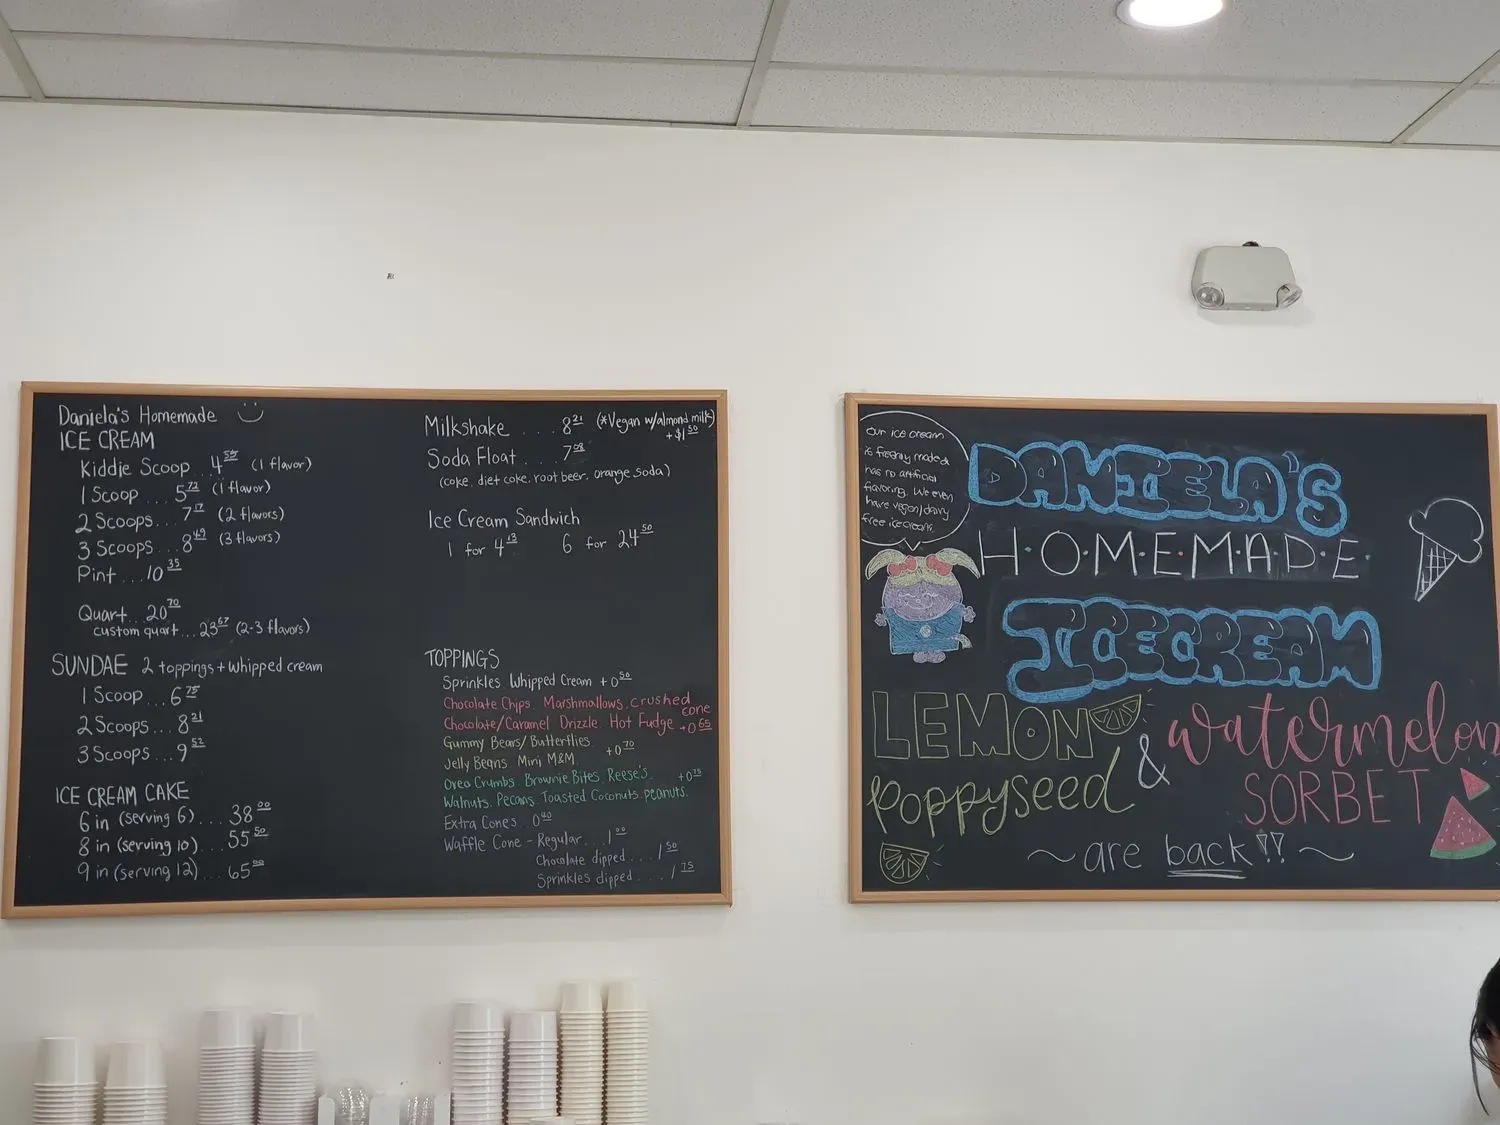 Daniela's Homemade
ICE CREAM
Kiddie Scoop . . 4 (1 flavor)
1 Scoop . . . 5 72 (1 flavor)
2 Scoops . . . 7 17 (2 flavors)
3 Scoops . . . 8 49 (3 flavors)
Pint . . . 10 35
Quart . . . 20 70
custom quart . . . 23 67 (2-3 flavors)
SUNDAE 2 toppings + whipped cream
1 Scoop . . . 6 75
2 Scoops . . . 8 21
3 Scoops . . . 9 52
ICE CREAM CAKE
6 in (serving 6) . . . 38 00
8 in (serving 10) . . . 55 50
9 in (serving 12) . . . 65 00
Milkshake . . . 8 21 (*Vegan w/almond milk)
+ $1 50
Soda Float . . . 7 08
(coke, diet coke, root beer, orange soda)
Ice Cream Sandwich
1 for 4 13 6 for 24 50
TOPPINGS
Sprinkles Whipped Cream + 0 50
Chocolate Chips Marshmallows crushed cone
Chocolate/Caramel Drizzle Hot Fudge + 0 65
Gummy Bears/Butterflies
Jelly Beans Mini M&M + 0 70
Oreo Crumbs Brownie Bites Reese's + 0 75
Walnuts Pecans Toasted Coconuts peanuts
Extra Cones . . 0 40
Waffle Cone - Regular . . . 1 00
Chocolate dipped . . . 1 50
Sprinkles dipped . . . . 1 75
Our ice cream
is freshly made &
has no artificial
flavoring. We even
have vegan/dairy
free icecream.
DANIELA'S
H·O·M·E·M·A·D·E·
ICECREAM
LEMON
poppyseed
&
watermelon
SORBET
~are back!! ~